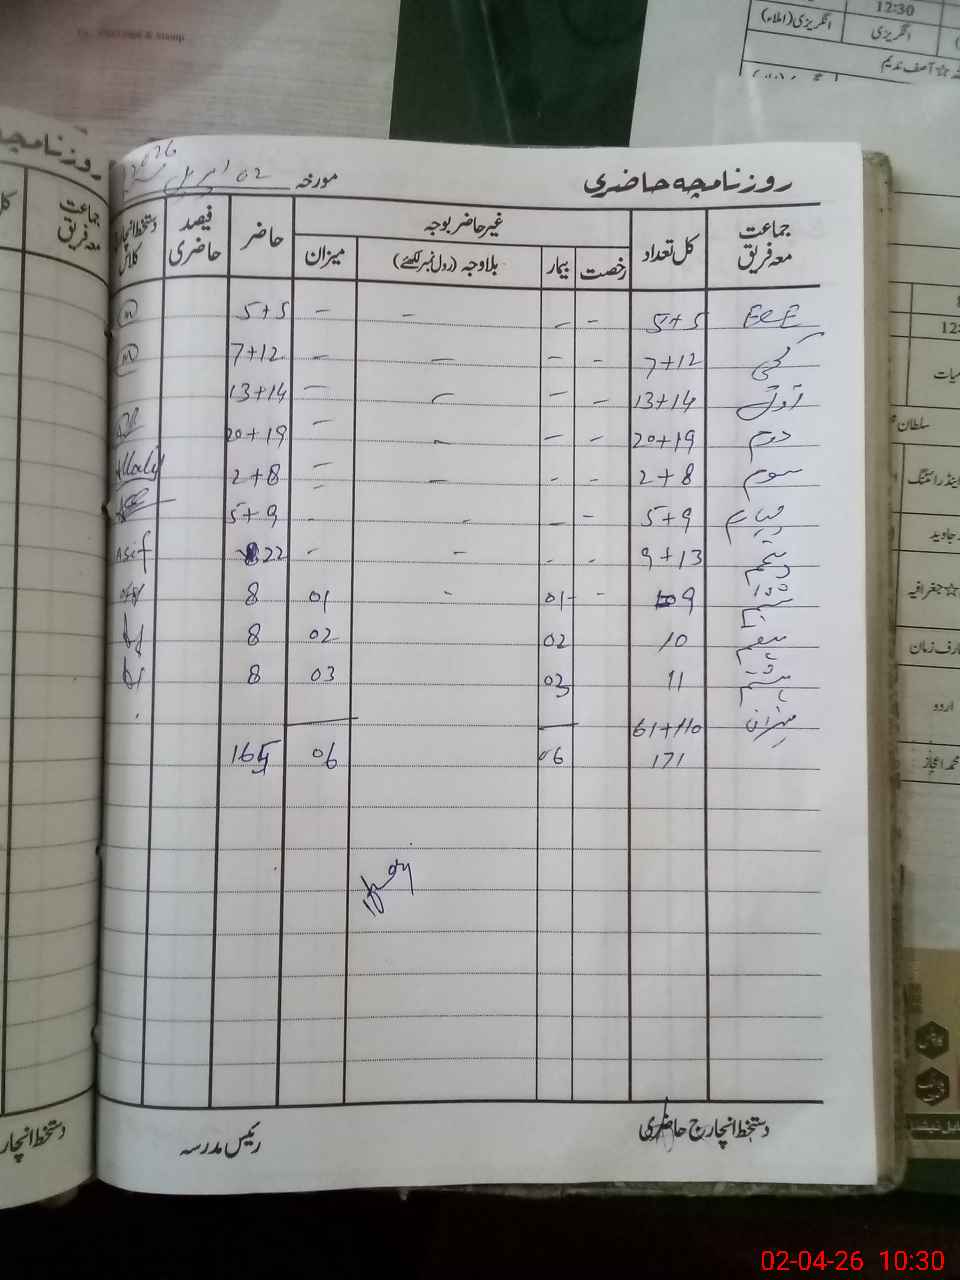 12:30
انگریزی انگریزی (املاء)
آصف ندیم
روزنامچہ حاضری مورخہ 02 اپریل 2026
جماعت معہ فریق کل تعداد غیر حاضر بوجہ حاضر فیصد حاضری دستخط انچارج کلاس
رخصت بیمار بلاوجہ (رول نمبر لکھئے) میزان
ECE 5+5 - - - - 5+5
کچی 7+12 - - - - 7+12
اول 13+14 - - - - 13+14
دوم 20+19 - - - - 20+19
سوم 2+8 - - - - 2+8
چہارم 5+9 - - - - 5+9
پنجم 9+13 - - - - 22 Asif
ششم 9 - 01 - 01 8
ہفتم 10 02 02 8
ہشتم 11 03 03 8
میزان 61+110
171 06 06 165
دستخط انچارج حاضری رئیس مدرسہ
روزنامچہ
جماعت معہ فریق
کل
دستخط انچار
12:
میات
سلطان
ینڈ رائٹنگ
جاوید
جغرافیہ
ارف زمان
اردو
محمد اعجاز
02-04-26 10:30